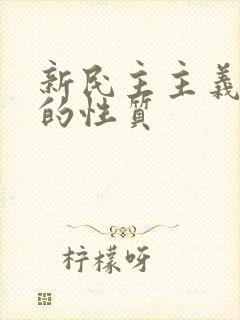 新民主主義
的性質
柠檬呀